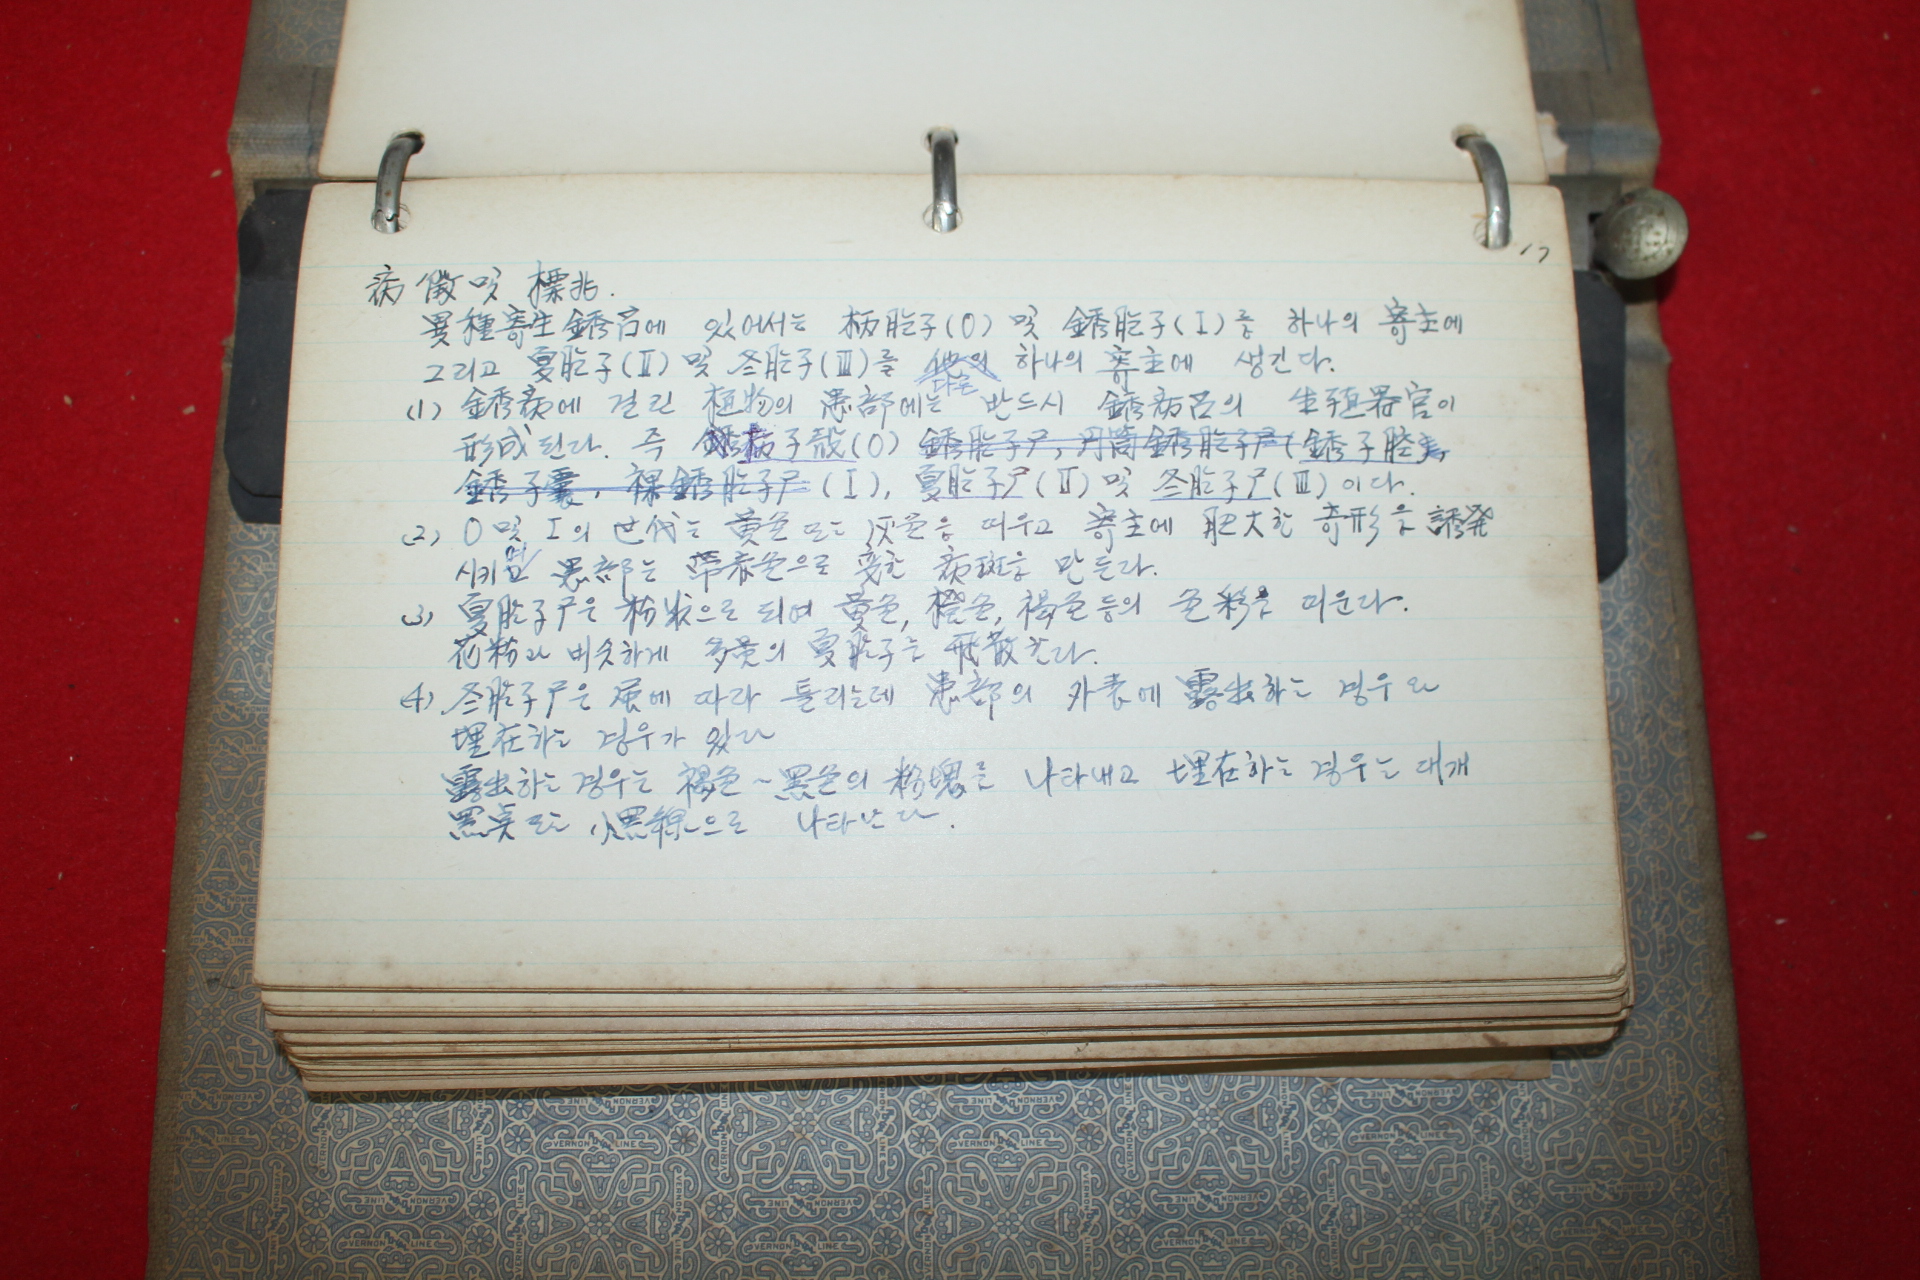 17
病徵 및 標兆.
異種寄生銹菌에 있어서는 柄胞子(O) 및 銹胞子(I)를 하나의 寄主에
그리고 夏胞子(Ⅱ) 및 冬胞子(Ⅲ)를 다른 하나의 寄主에 생긴다.
(1) 銹病에 걸린 植物의 患部에는 반드시 銹病菌의 生殖器官이
形成된다. 즉 銹柄子殼(O) 銹胞子尸, 円筒銹胞子尸(銹子腔
銹子囊, 裸銹胞子尸 (I), 夏胞子尸(Ⅱ) 및 冬胞子尸(Ⅲ)이다.
(2) O 및 I의 世代는 黄色 또는 灰色을 띠우고 寄主에 肥大한 奇形을 誘発
시키며 患部는 帶赤色으로 変한 病斑을 만든다.
(3) 夏胞子尸은 粉狀으로 되여 黄色, 橙色, 褐色等의 色彩를 띠운다.
花粉과 비슷하게 多量의 夏胞子를 飛散한다.
(4) 冬胞子尸은 属에 따라 틀리는데 患部의 外表에 露出하는 경우와
埋在하는 경우가 있다
露出하는 경우는 褐色~黑色의 粉塊를 나타내고 埋在하는 경우는 대개
黑点 또는 小黑線으로 나타난다.
VERNON LINE
VERNON LINE
VERNON LINE
VERNON LINE
VERNON LINE